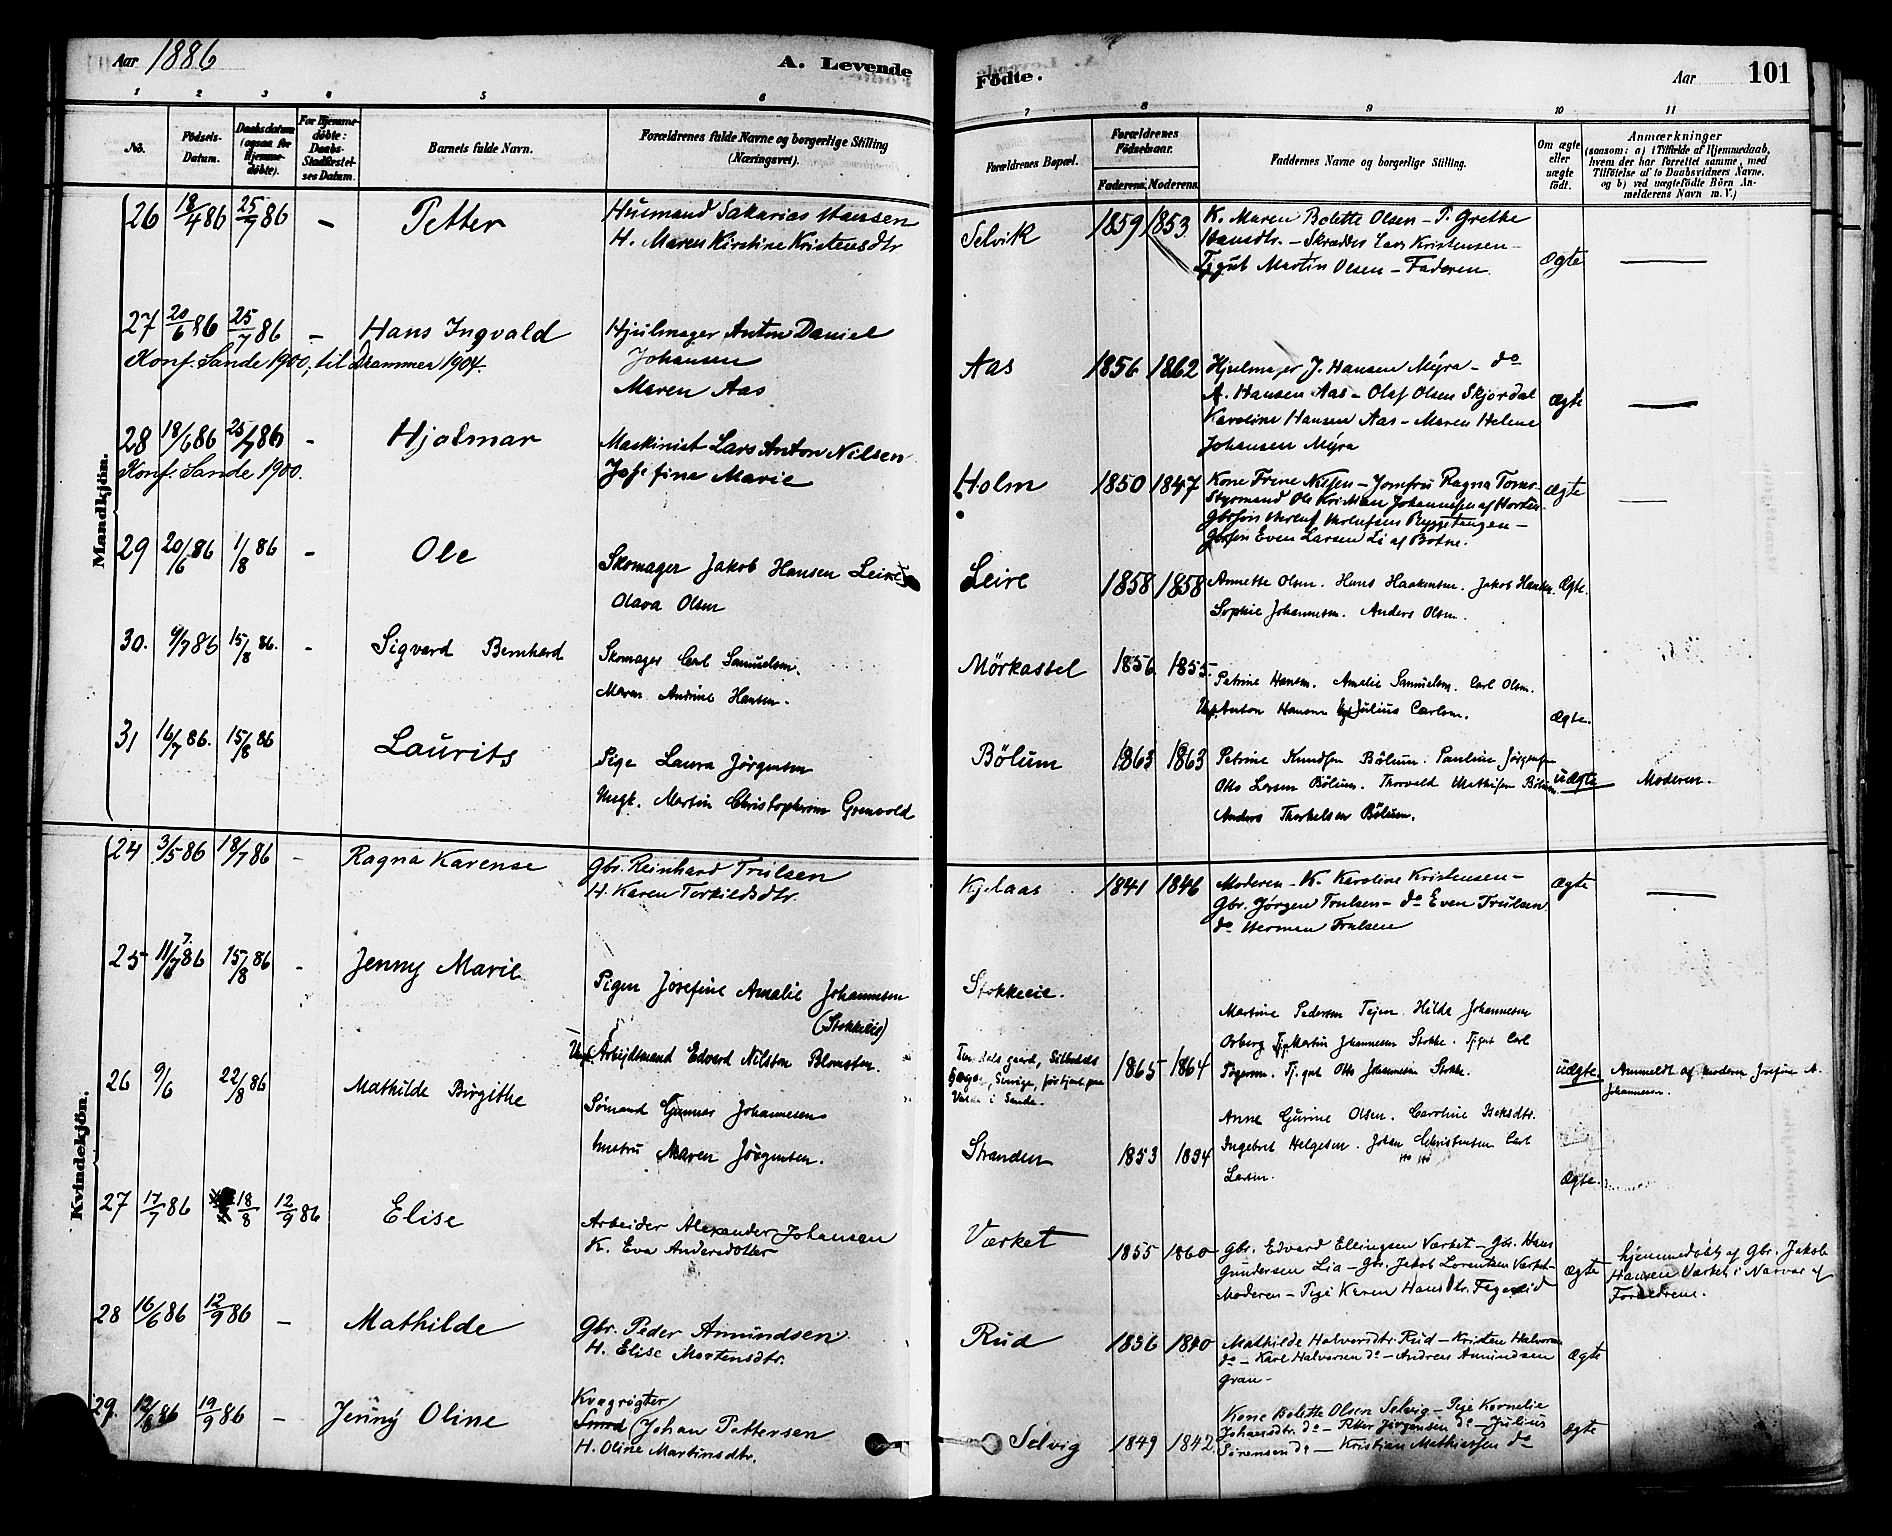 Aar 1886 A. Levende
1 2 3 4 5 6
No. Födsels-Datum. Daabsdatum (ogsaa for Hjemme-döbte). For Hjemme-döbte: Daabs-Stadfæstel-ses Datum. Barnets fulde Navn. Forældrenes fulde Navne og borgerlige Stilling (Næringsvei).
Mandkjön.
26 18/4 86 25/7 86 – Petter Husmand Sakarias Hansen
H. Maren Kirstine Kristensdtr.
27 20/6 86 25/7 86 – Hans Ingvald Hjulmager Anton Daniel
Konf. Sande 1900, til Drammen 1904. Johansen
Maren Aas
28 18/6 86 25/7 86 – Hjalmar Maskinist Lars Anton Nilsen
Konf. Sande 1900. Josefine Marie
29 20/6 86 1/8 86 – Ole Skomager Jakob Hansen Leire
Olava Olsen
30. 4/7 86 15/8 86. – Sigvard Bernhard Skomager Carl Samuelsen.
Maren Andrine Hansen.
31 16/7 86. 15/8 86 Laurits Pige Laura Jørgensen
Ungk. Martin Christophersen Grenvold
Kvindekjön.
24 3/5 86 18/7 86 – Ragna Karense Gbr. Reinhard Trulsen
H. Karen Terkildsdtr.
25 11/7 86 15/8 86 – Jenny Marie Pigen Josefine Amalie Johannesen
(Stokkeeie)
Arbejdsmand Edvard Nilsson Blomster.
26 9/6 22/8 86 Mathilde Birgithe Sømand Gunnar Johannesen
Hustru Maren Jørgensen.
27 17/7 86 18/8 12/9 86 Elise Arbeider Alexander Johansen
K. Eva Andersdotter
28 16/6 86 12/9 86 – Mathilde Gbr. Peder Amundsen
H. Elise Mortensdtr.
29. 12/8 86 19/9 86 – Jenny Oline Kvægrøgter
Johan Pettersen
H. Oline Martinsdtr.
Födte. Aar 101
7 8 9 10 11
Forældrenes Bopæl. Forældrenes Födselsaar. Faderens. Moderens. Faddernes Navne og borgerlige Stilling. Om ægte eller uægte födt. Anmærkninger (saasom: a) i Tilfælde af Hjemmedaab, hvem der har forrettet samme, med Tilföielse af to Daabsvidners Navne, og b) ved uægtefödte Börn Anmelderens Navn m. V.)
Selvik 1859 1853 K. Maren Bolette Olsen – P. Grethe
Hansdtr. – Skrædder Lars Kristensen –
Tjgut Martin Olsen – Faderen. Ægte —
Aas 1856 1862 Hjulmager J. Hansen Myra – do
A. Hansen Aas – Olaf Olsen Skjordal Ægte —
Karoline Hansen Aas – Maren Helene
Johansen Myra
Holm 1850 1847 Kone Frene Nilsen – Jomfru Ragna Ægte —
Styrmand Ole Kristian Johannesen af Horten
Ryggetangen –
Even Larsen Li af Botne.
Leire 1858 1858 Annette Olsen. Hans Haakensen. Jakob Hansen. Ægte.
Sophie Johannesen. Anders Olsen.
Mørkassel 1856 1855. Petrine Hansen. Amalie Samuelsen. Carl Olsen.
Anton Hansen Julius Carlsen. Ægte.
Bölum 1863 1863 Petrine Knudsen Bölum. Pauline Jørgensen
Otto Larsen Bölum. Thorvald Mathisen Bölum uægte Moderen.
Anders Thorkelsen Bölum.
Kjelaas 1841 1846 Moderen – K. Karoline Kristensen – Ægte —
Gbr. Jörgen Trulsen – do Even Trulsen
do Herman Trulsen
Stokkeeie. Martine Pedersen Hilda Johannesen
Martin Johannesen Stokke. Tjgut Carl
1865 1864 Tj. gut Otto Johannesen Stokke. uægte. Anmeldt af Moderen Josefine A.
i Sande. Johannesen.
Anne Gurine Olsen. Caroline
Stranden 1853 1854 Ingebret Helgesen. Johan Christensen Carl
Larsen. Ægte.
Værket 1855 1860 Gbr. Edvard Ellingsen Værket – Gbr. Hans
Gundersen Lia – Gbr. Jakob Lorentsen Værket – Ægte hjemmedøbt af Gbr. Jakob
Moderen – Pige Karen Hansdtr. Hansen Værket i Nærvær af
Forældrene.
Rud 1836 1840 Mathilde Halvorsdtr. Rud – Kristen Halvorsen
do – Karl Halvorsen do – Andreas Amundsen Ægte
Gran –
Selvig 1849 1842 Kone Bolette Olsen Selvig – Pige Kornelie
Johansdtr. do – Petter Jörgensen do – Julius Ægte
Sörensen do – Kristian Mathiassen do